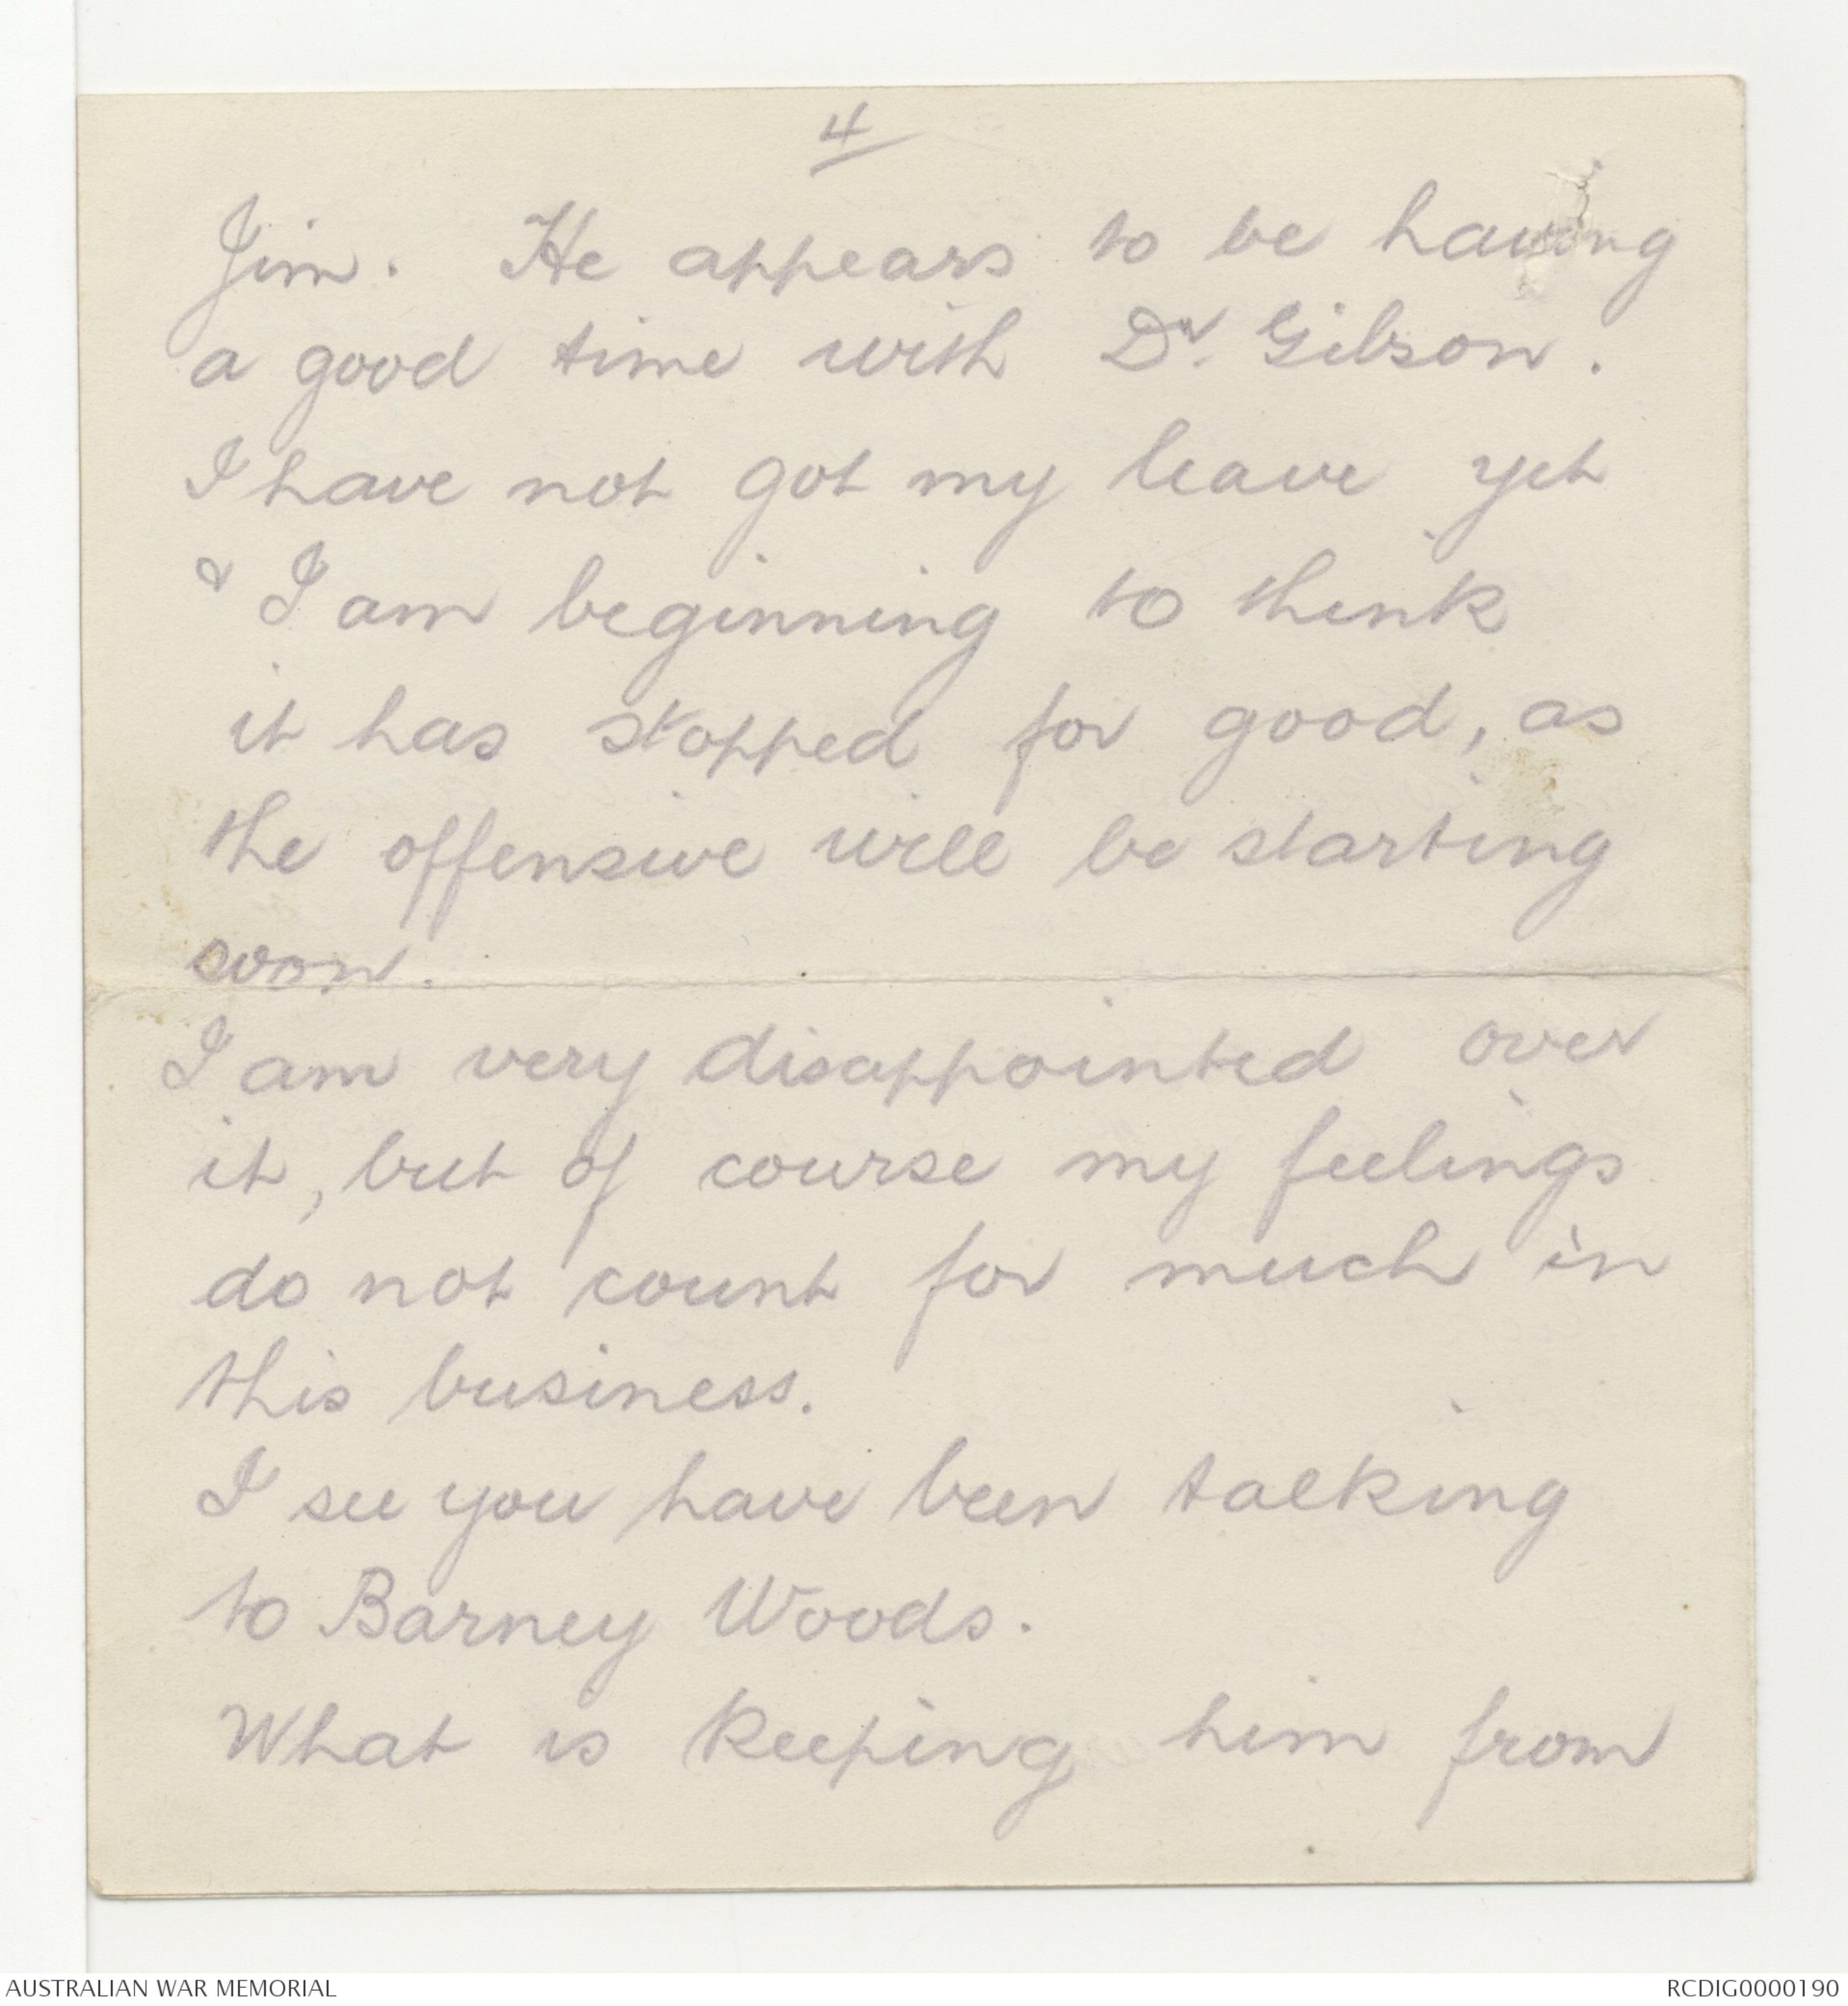 4
Jim. He appears to be having
a good time with Dr. Gibson.
I have not got my leave yet
& I am beginning to think
it has stopped for good, as
the offensive will be starting
soon.
I am very disappointed over
it, but of course my feelings
do not count for much in
this business.
I see you have been talking
to Barney Woods.
What is keeping him from
AUSTRALIAN WAR MEMORIAL
RCDIG0000190